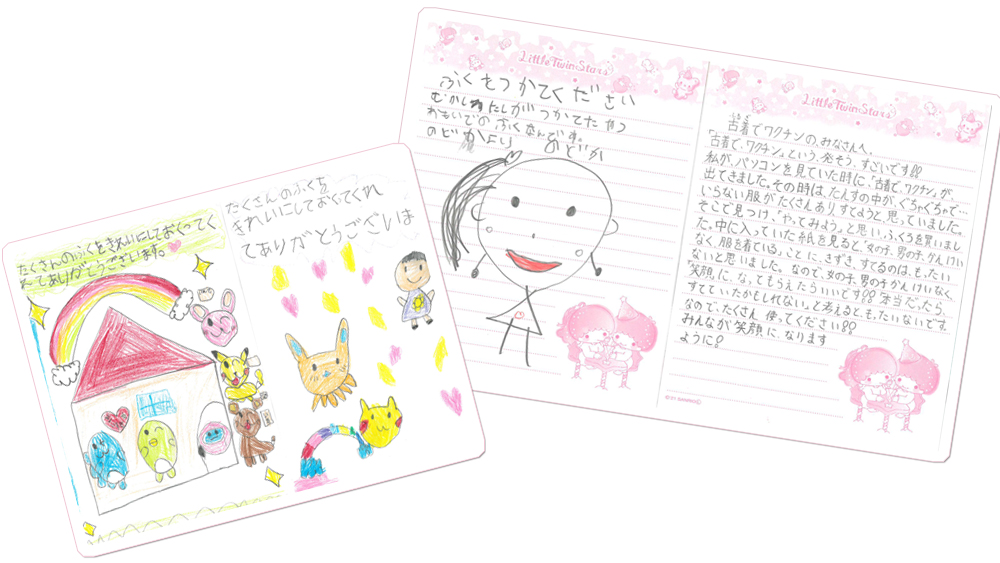 たくさんのふくをきれいにしておくってく
れてありがとうございます。
たくさんのふくを
きれいにしておくてくれ
てありがとうございま
LittleTwinStars
ふくをつかてください
むかしわたしがつかてたやつ
おもいでのふくなんです。
のどかより
LittleTwinStars
古着でワクチンの、みなさんへ、
「古着で、ワクチン」という、発そう、すごいです!!
私が、パソコンを見ていた時に、「古着で、ワクチン」が、
出てきました。その時は、たんすの中が、ぐちゃぐちゃで…
いらない服がたくさんあり、すてようと、思っていました。
そこで見つけ、「やってみよう。」と思い、ふくろを買いまし
た。中に入っていた紙を見ると、「女の子、男の子、かんけい
なく、服を着ている。」ことに、きずき、すてるのは、もったい
ないと思いました。なので、女の子、男の子かんけいなく、
「笑顔」に、なってもらえたらいいです!!「本当だったら、
すてていたかもしれない。」と考えると、もったいないです。
なので、たくさん使ってください!!
みんなが笑顔に、なります
ように!